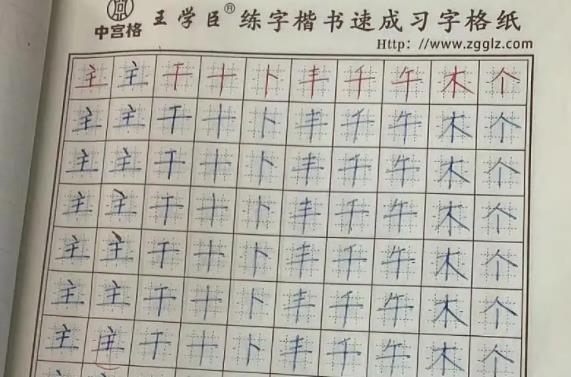 中宫格 王学臣® 练字楷书速成习字格纸
Http: //www.zgglz.com
主 主 干 十 卜 丰 千 午 木 个
主 主 干 十 卜 丰 千 午 木 个
主 主 干 十 卜 丰 千 午 木 个
主 主 干 十 卜 丰 千 午 木 个
主 主 干 十 卜 丰 千 午 木 个
主 主 干 十 卜 丰 千 午 木 个
主 主 干 十 卜 丰 千 午 木 个